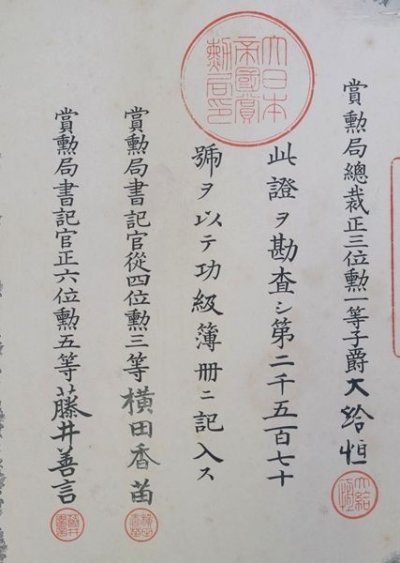 賞勲局總裁正三位勲一等子爵大給恒
此證ヲ勘査シ第二千五百七十
號ヲ以テ功級簿册ニ記入ス
賞勲局書記官從四位勲三等横田香苗
賞勲局書記官正六位勲五等藤井善言
大日本
帝國賞
勲局印